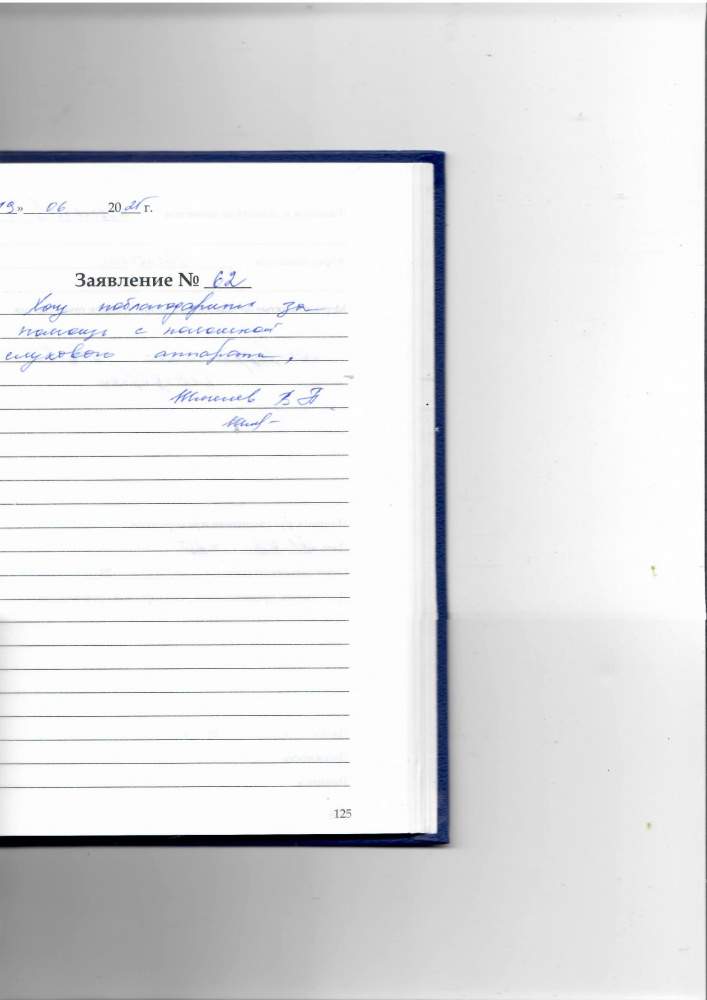 19» 06 2025 г.
Заявление № 62
Хочу поблагодарить за
помощь с поломкой
слухового аппарата.
В П
125